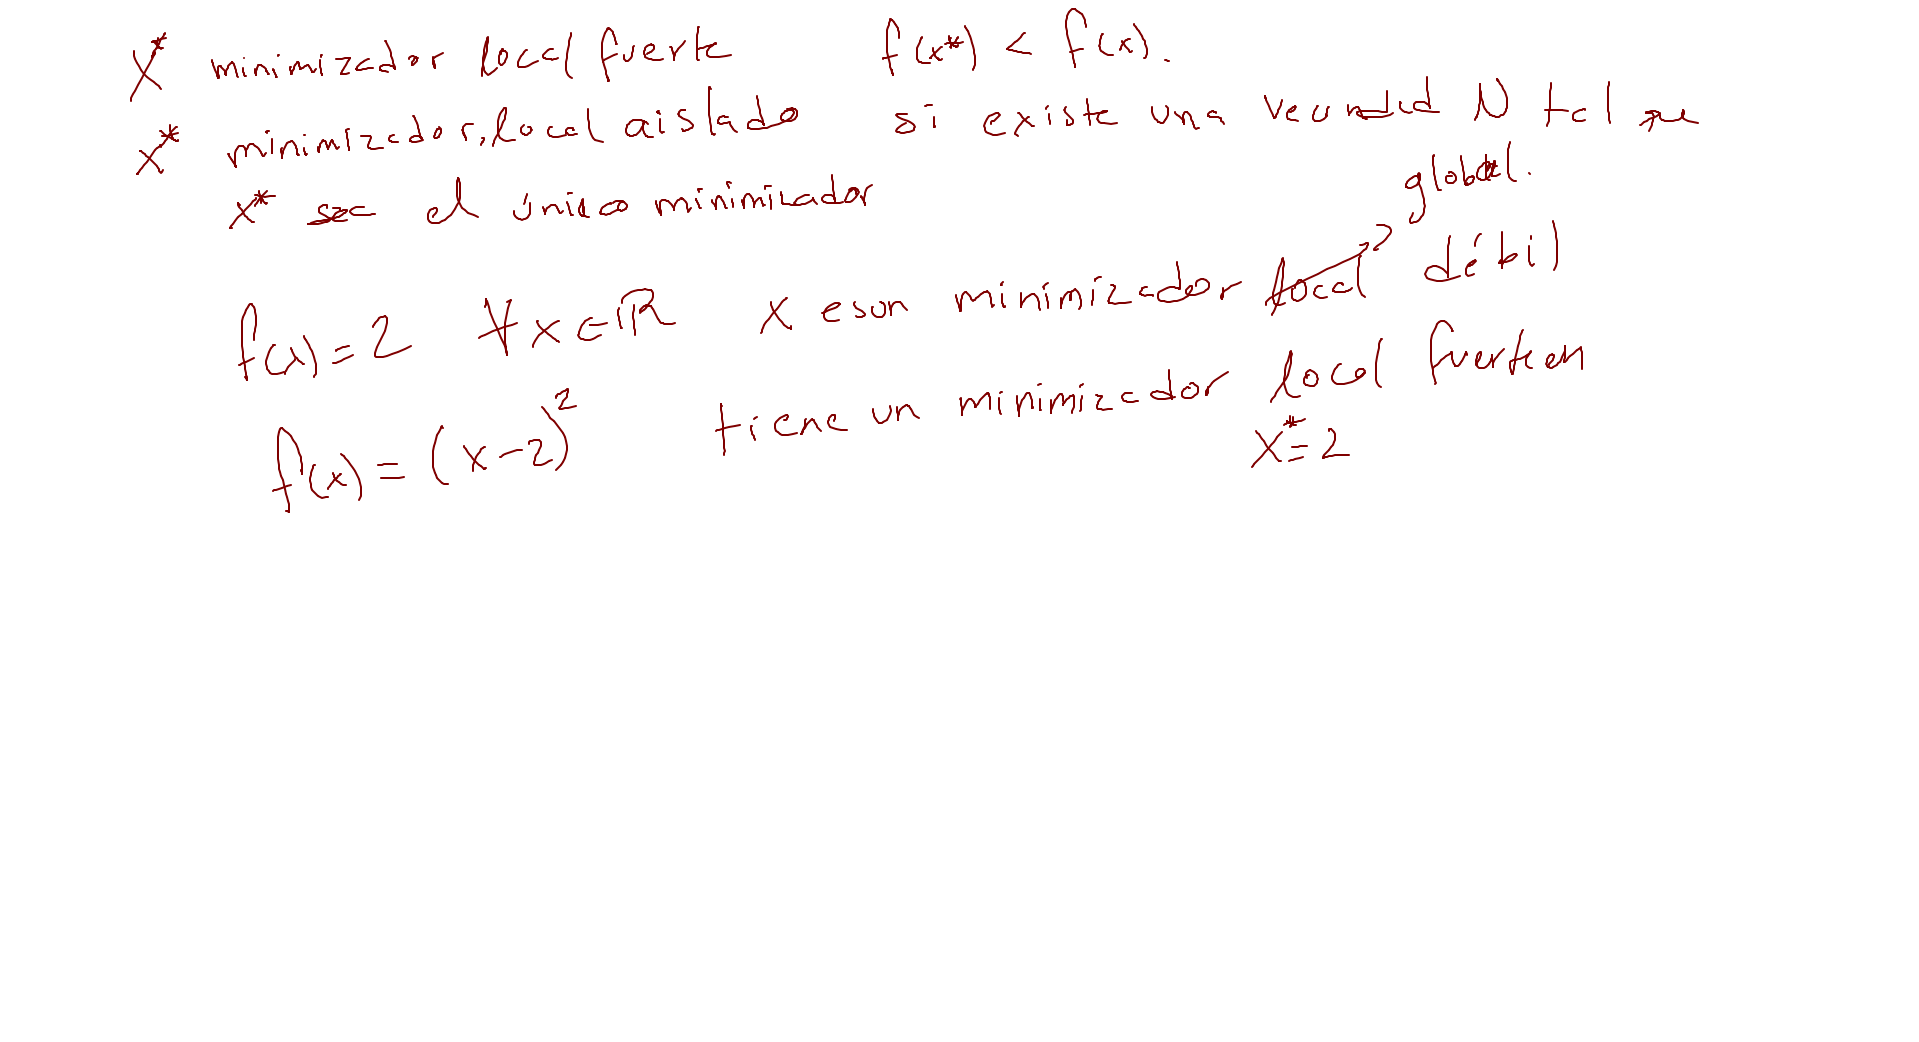 x* minimizador local fuerte f(x*) < f(x).
x* minimizador, local aislado si existe una vecindad N tal que
x* sea el único minimizador
global.
f(x) = 2 ∀x∈ℝ x es un minimizador local débil
f(x) = (x-2)² tiene un minimizador local fuerte en
x* = 2